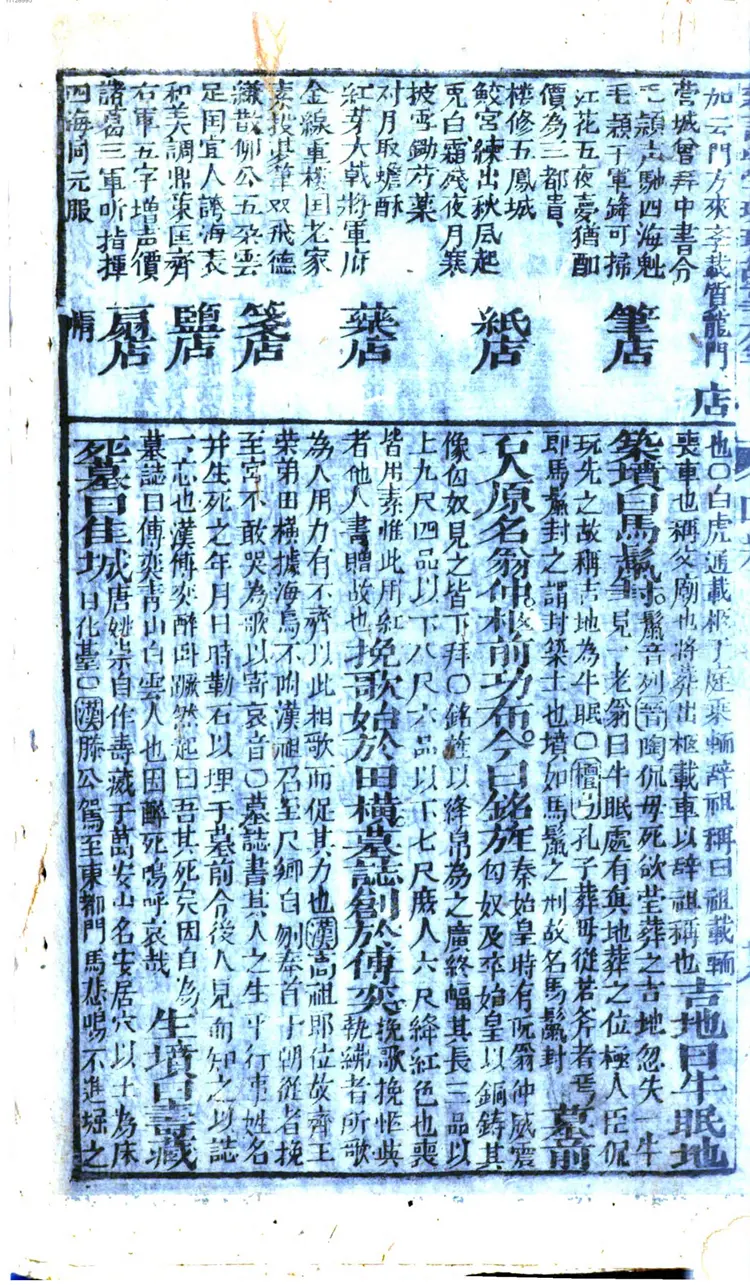 加云門方來
質龍門
店
管城曾拜中書令
毛頴声馳四海魁
筆店
毛頴千軍鋒可掃
江花五夜夢猶
價為三都貴
樓修五鳳城
紙店
鮫宮練出秋風起
兎白霜殘夜月寒
披雲鋤芍薬
对月取蟾酥
藥店
紅芽大戟將軍府
金線重樓国老家
箋店
散柳公五朶雲
足国宜人誇海表
鹽店
和羙調鼎
右軍五字增声價
扇店
諸葛三軍听指揮
四海同元服
也○白虎通載柩于庭乘輀辞祖稱曰祖載輀
喪車也稱父廟也將葬出柩載車以辞祖稱也吉地曰牛眠地
築墳曰馬鬣封鬣音列晉陶侃母死欲葬之吉地忽失一牛
見一老翁曰牛眠處有地葬之位極人臣侃
玩先之故稱吉地為牛眠○檀弓孔子葬母從若斧者焉
即馬鬣封之謂封築土也墳如馬鬣之形故名馬鬣封墓前
石人原名翁仲柩前功布今曰銘旌秦始皇時有阮翁仲威震
匈奴及卒始皇以銅鋳其
像匈奴見之皆下拜○銘旌以絳帛為之廣終幅其長三品以
上九尺四品以下八尺六品以下七尺庶人六尺絳紅色也喪
皆用素惟此用紅挽歌始於田橫墓誌創於傅奕挽歌挽柩
者他人書贈故也執紼者所歌
為人用力有不齊以此相歌而促其力也漢高祖即位故齊王
荣弟田横據海島不附漢祖召至尸鄉自刎奉首于朝從者挽
至宮不敢哭為歌以寄哀音○墓誌書其人之生平行事姓名
并生死之年月日時勒石以埋于墓前令後人見而知之以誌
不忘也漢傅奕醉卧蹶然起曰吾其死矣因自為
墓誌曰傅奕青山白雲人也因醉死嗚呼哀哉生墳曰壽藏
死墓曰佳城唐姚崇自作壽藏于萬安山名安居穴以土為床
曰化䑓○漢滕公駕至東都門馬悲鳴不進掘之